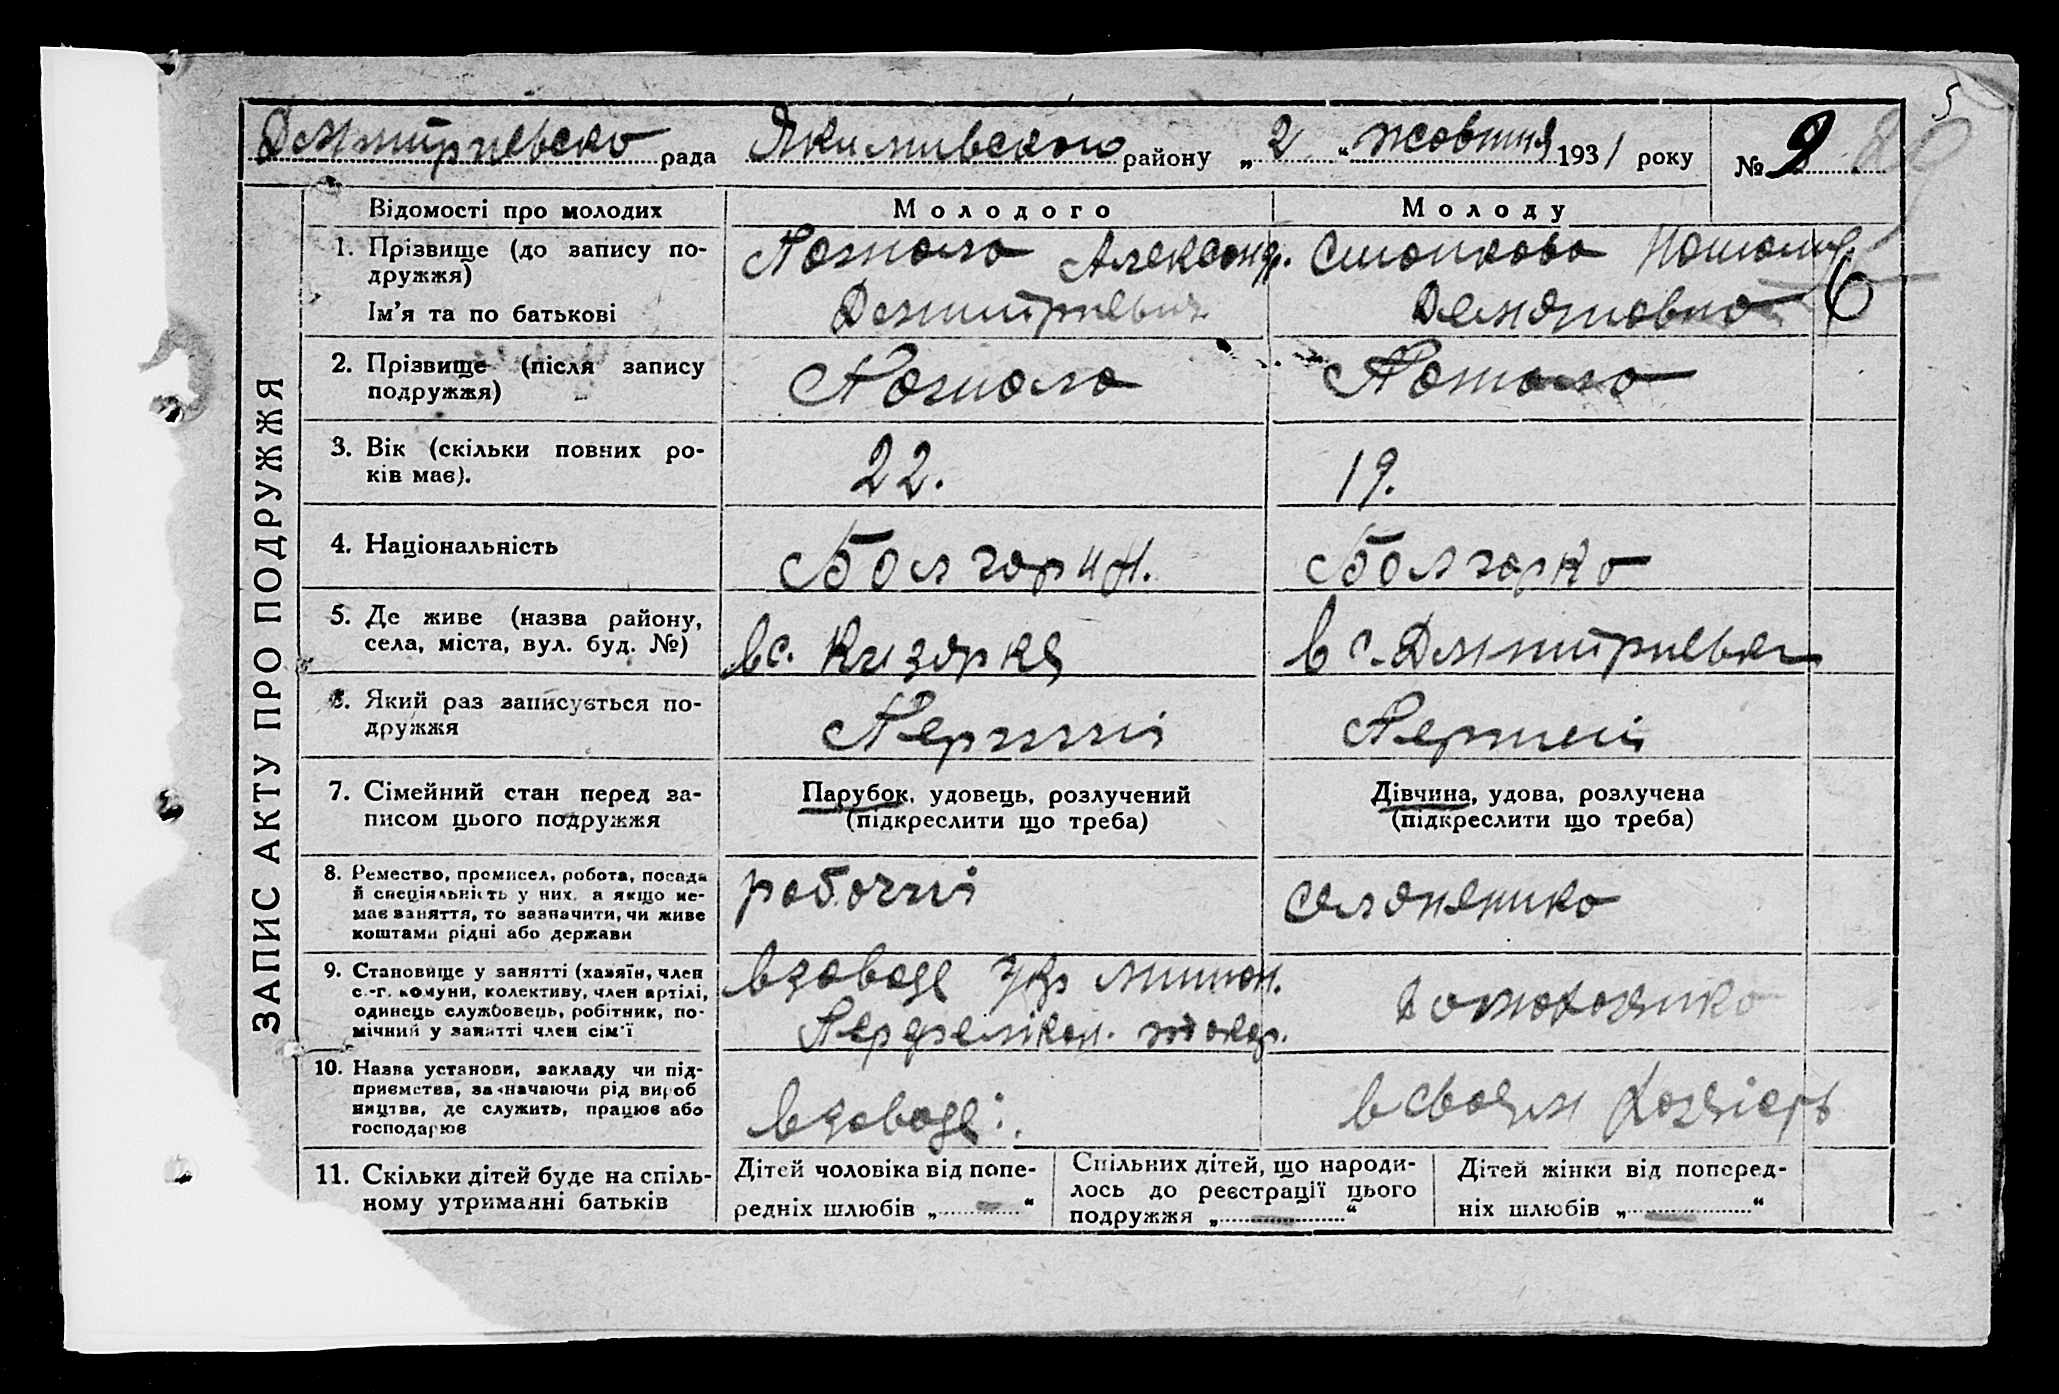 Дмитриевська рада Якимивського району „2“ жовтня 1931 року №9
5
ЗАПИС АКТУ ПРО ПОДРУЖЖЯ
Відомості про молодих Молодого Молоду
1. Прізвище (до запису по-
дружжя)
Ім'я та по батькові
Александр.
Дмитриевич
6
2. Прізвище (після запису
подружжя)
3. Вік (скільки повних ро-
ків має).
22. 19.
4. Національність
Болгарин. Болгарка
5. Де живе (назва району,
села, міста, вул. буд. №)
в с. в с. Дмитриевки
6. Який раз записується по-
дружжя
Перший Перший
7. Сімейний стан перед за-
писом цього подружжя
Парубок, удовець, розлучений
(підкреслити що треба)
Дівчина, удова, розлучена
(підкреслити що треба)
8. Ремество, промисел, робота, посада
й спеціяльність у них, а якщо не-
має заняття, то зазначити, чи живе
коштами рідні або держави
рабочий селянинка
9. Становище у занятті (хазяїн, член
с.-г. комуни, колективу, член артілі,
одинець службовець, робітник, по-
мічний у занятті член сім'ї
в заводе
токар.
10. Назва установи, закладу чи під-
приємства, зазначаючи рід вироб
ництва, де служить, працює або
господарює
в заводе.
11. Скільки дітей буде на спіль-
ному утриманні батьків
Дітей чоловіка від попе-
редніх шлюбів „—“
Спільних дітей, що народи-
лось до реєстрації цього
подружжя „—“
Дітей жінки від поперед-
ніх шлюбів „—“